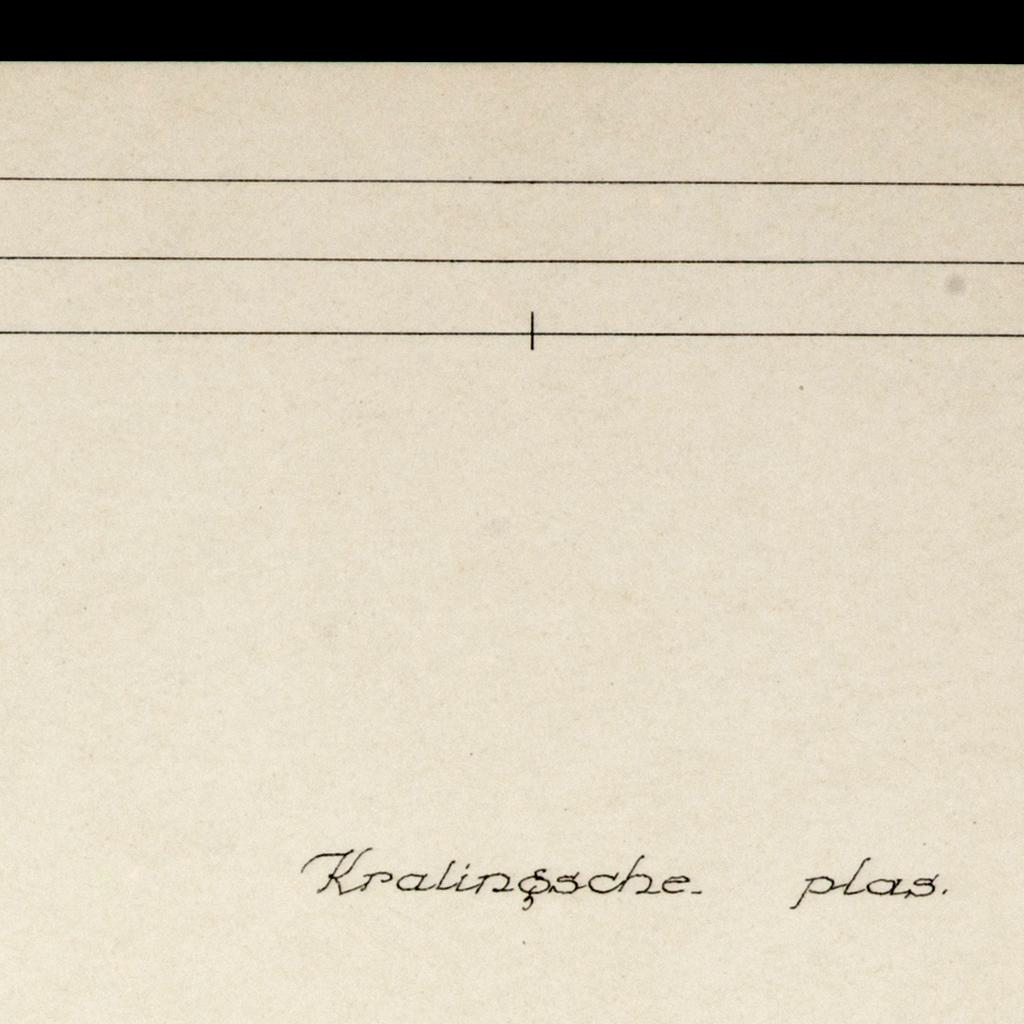 Kralingsche plas.